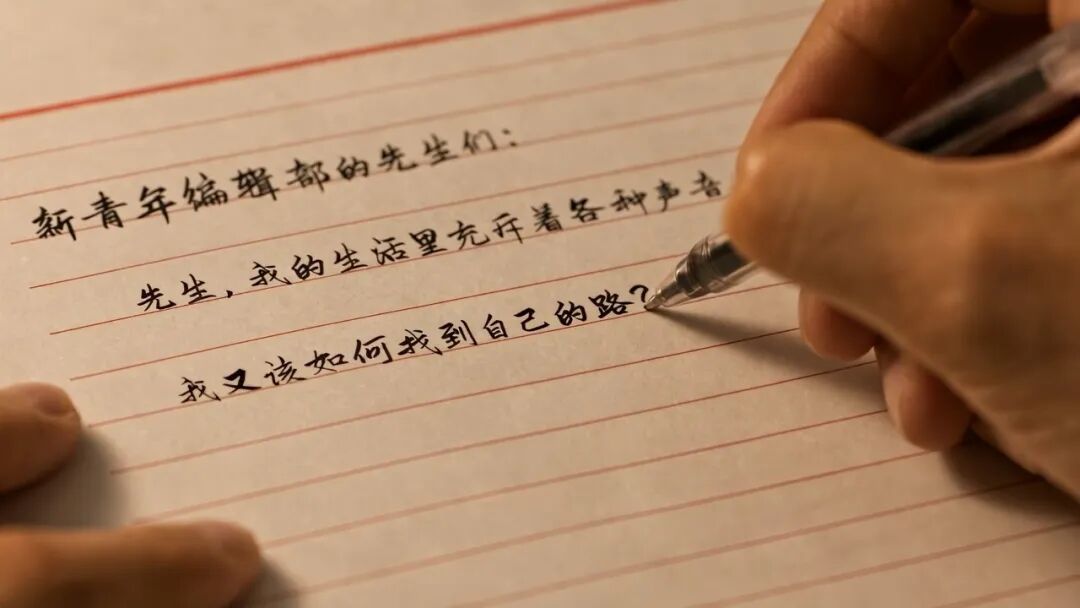 新青年编辑部的先生们:
先生,我的生活里充斥着各种声音
我又该如何找到自己的路?